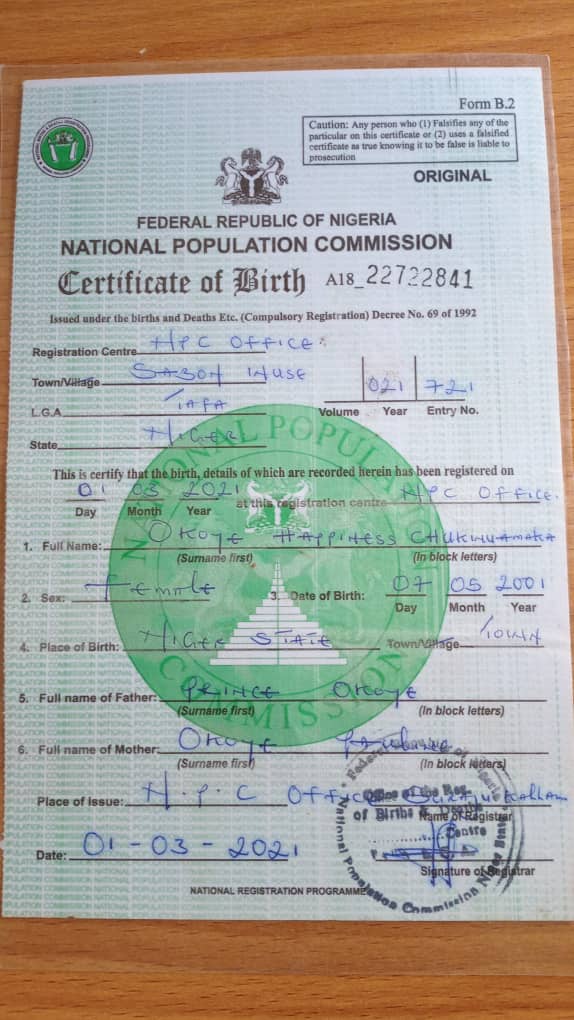 Form B.2
Caution: Any person who (1) Falsifies any of the
particular on this certificate or (2) uses a falsified
certificate as true knowing it to be false is liable to
prosecution
ORIGINAL
FEDERAL REPUBLIC OF NIGERIA
NATIONAL POPULATION COMMISSION
Certificate of Birth A18_22722841
Issued under the births and Deaths Etc. (Compulsory Registration) Decree No. 69 of 1992
Registration Centre NPC OFFICE
Town/Village SABON
021 721
L.G.A TAFA
Volume Year Entry No.
State NIGER
This is certify that the birth, details of which are recorded herein has been registered on
01 03 2021 at this registration centre NPC OFFICE.
Day Month Year
1. Full Name: OKOYE HAPPINESS CHUKWUAMAKA
(Surname first) (In block letters)
2. Sex: Female 3. Date of Birth: 07 05 2001
Day Month Year
4. Place of Birth: NIGER STATE Town/Village TOWN
5. Full name of Father: PRINCE OKOYE
(Surname first) (In block letters)
6. Full name of Mother: OKOYE
(Surname first) (In block letters)
Place of Issue: N.P.C OFFICE
Name of Registrar
Date: 01-03-2021
Signature of Registrar
NATIONAL REGISTRATION PROGRAMME
NATIONAL POPULATION COMMISSION
Office of the Reg.
of Births & Deaths
Centre
National Population Commission Niger State